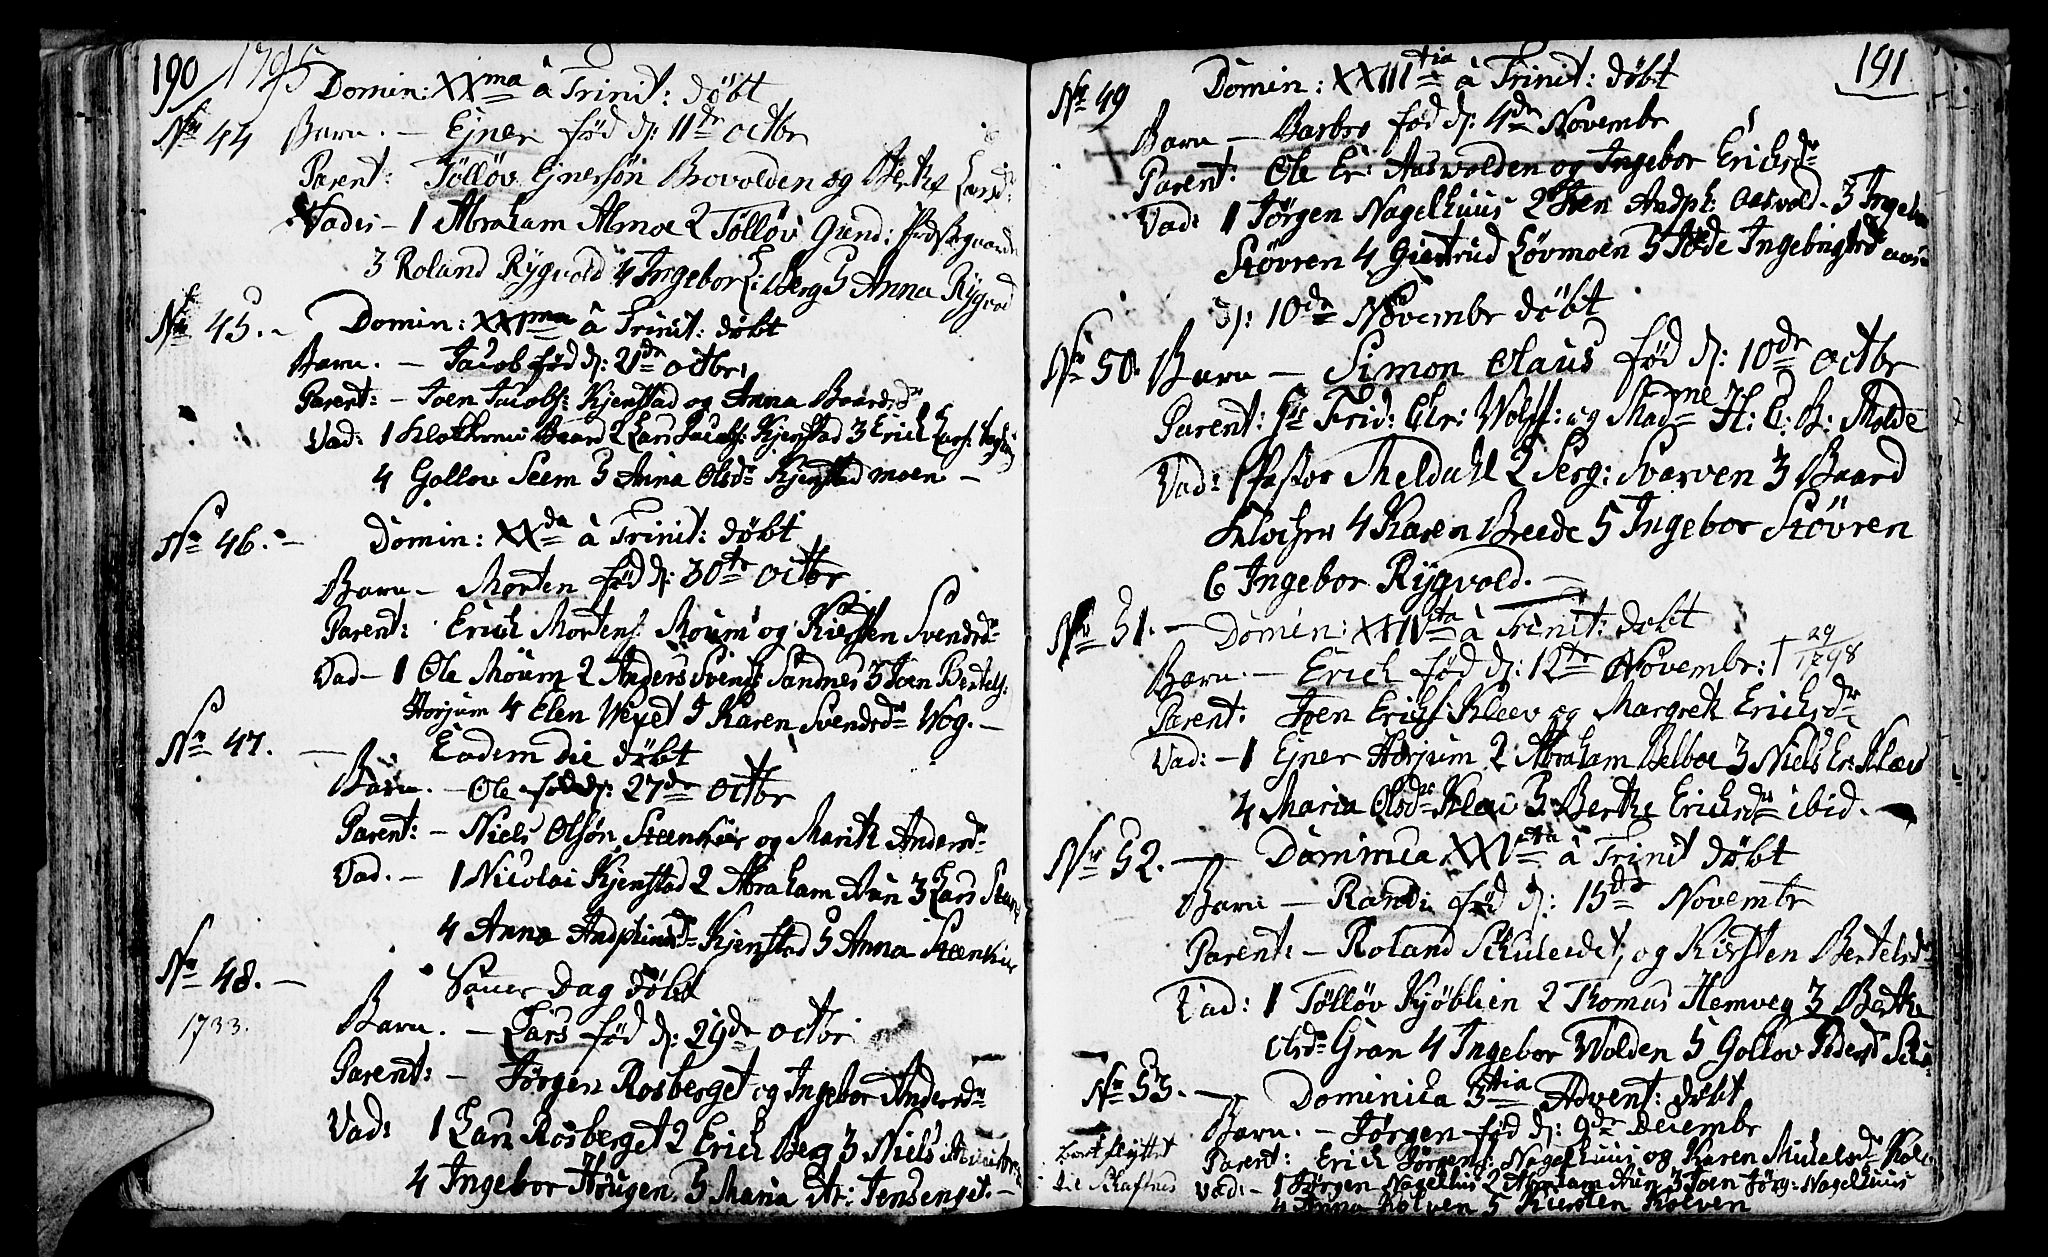 190 1795
Domin: XXma â Trinit: döbt
No 44 Barn. – Ejner fød d: 11te Octbr
Parent: Tölløv Ejnersön Brovolden og Berthe Larsd:
Vad: – 1 Abraham Almoe 2 Tölløv Gund:
3 Roland Rygvold 4 Ingebor L: Berg 5 Anna Rygvod
No 45. – Domin: XXIma â Trinit: döbt
Barn. – Jacob fød d: 21de Octbr
Parent: – Joen Jacobs: Kjenstad og Anna Baardsdr
Vad: 1 Klokkeren Baard 2 Lars Jacobs: Kjenstad 3 Erich Lars:
4 Gollov Seem 5 Anna Olsdr Kjenstad moen –
No 46. – Domin: XXda â Trinit: döbt
Barn – Morten fød d: 30te Octbr
Parent: Erich Mortens: Moum og Kirsten Svendsdr
Vad – 1 Ole Möum 2 Anders Svends: Sandnes 3 Joen Bertels:
Horjum 4 Elen Weyet 5 Karen Svendsdr Wog. –
No 47. – Eadem die döbt
Barn. – Ole fød d: 27de Octbr
Parent: – Niels Olsön Steenkier og Marith Andersdr
Vad. – 1 Nicolai Kjenstad 2 Abraham Aun 3 Lars
4 Anna Kjenstad 5 Anna Steenkier
No 48. – Samer Dag döbt
1733. Barn. – Lars fød d: 29de Octbr
Parent: – Jørgen Rosberget og Ingebor Andersdr
Vad: 1 Lars Rosberget 2 Erich Berg 3 Niels
4 Ingebor Hougen. 5 Maria Ar: Jensenget. –
191
No 49 Domin: XXIIItia â Trinit: döbt
Barn – Barbro fød d: 4de Novembr
Parent: Ole Er: Aasvolden og Ingebor Erichsdr
Vad: 1 Jørgen Nagelhuus 2 Joen Andph: Aasvold. 3 Ingebor
Støvren 4 Giertrud Lövmoen 5 Ingebrigtsdr
d: 10de Novembr döbt
No 50. Barn – Simon Olaus fød d: 10de Octbr
Parent: Sr Frid: Chr: Wolff: og Madme H: C: B: Molde
Vad: 1 Pastor Meldahl 2 Serg: Svarven 3 Baard
Klocker 4 Karen Brede 5 Ingebor Støvren
6 Ingebor Rygvold. –
No 51. – Domin: XXIVta â Trinit: döbt
Barn – Erich fød d: 12te Novembr: † 29/1798
Parent: Joen Erichs: Kleev og Margreth Erichsdr
Vad: – 1 Ejner Horjum 2 Abraham Belboe 3 Niels Er: Klæv
4 Maria Olsdr Klev 5 Berthe Erichsdr ibid. –
No 52. – Dominica XXVta â Trinit döbt
Barn – Randi fød d: 15de Novembr
Parent: – Roland Schulerdet, og Kirsten Bertelsdr
Vad: 1 Tölløv Kjöblien 2 Thomas Hemveg 3 Berthe
Olsdr Gran 4 Ingebor Wolden 5 Gollov Pedersdr
No 53. – Dominica 3tia Advent: döbt
Barn. – Jørgen fød d: 9de Decembr
bort flyttet Parent: Erich Jørgens: Nagelhuus og Karen Michelsdr
til Vad: – 1 Jørgen Nagelhus 2 Abraham Aun 3 Joen Jørg: Nagelhuus
4 Anna Kolven 5 Kiersten Kolven